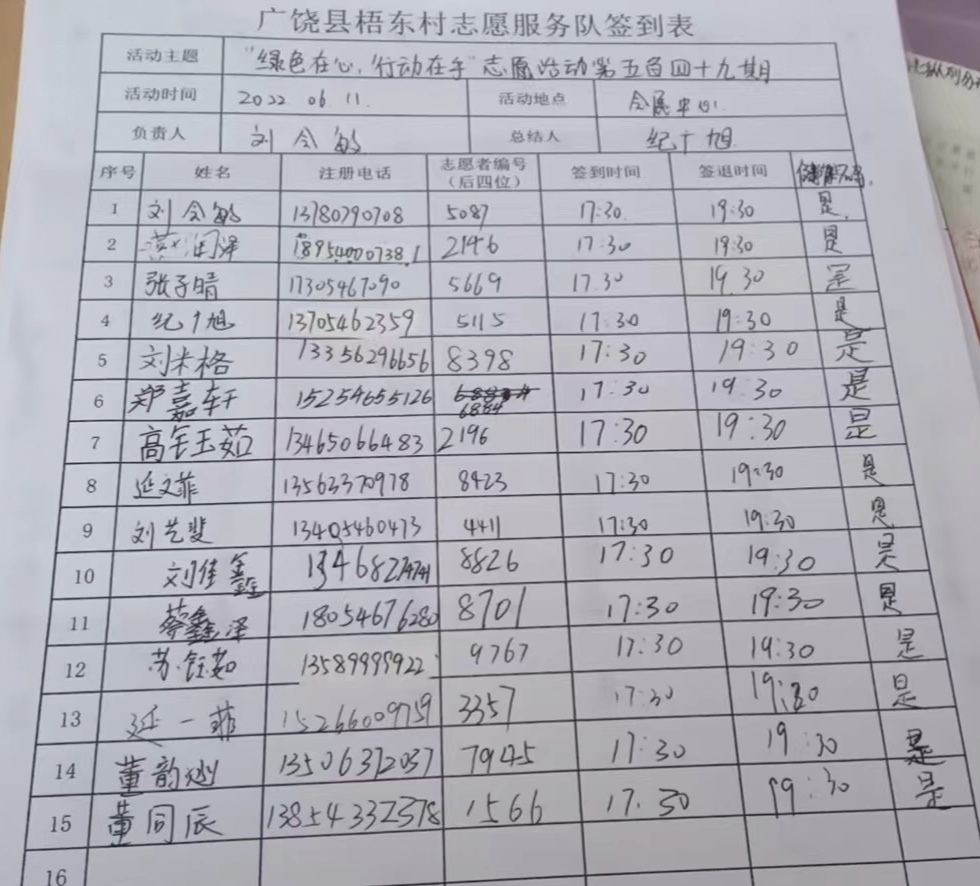 广饶县梧东村志愿服务队签到表
活动主题 "绿色在心,行动在手"志愿活动第五百四十九期
活动时间 2022.06.11. 活动地点 全民中心.
负责人 刘令敏 总结人 纪广旭
序号 姓名 注册电话 志愿者编号(后四位) 签到时间 签退时间 健康码
1 刘令敏 13780790708 5087 17:30 19:30 是
2 润泽 18954000738 2196 17:30 19:30 是
3 张子晴 17305467090 5669 17.30 19.30 是
4 纪广旭 13705462359 5115 17:30 19:30 是
5 刘米格 13356296656 8398 17:30 19:30 是
6 郑嘉轩 15254655126 6884 17:30 19:30 是
7 高钰茹 13465066483 2196 17:30 19:30 是
8 延文菲 13563370978 8423 17:30 19:30 是
9 刘艺斐 13405460473 4411 17:30 19:30 是
10 刘佳鑫 8826 17:30 19:30 是
11 蔡鑫泽 18054676280 8701 17:30 19:30 是
12 苏钰茹 13589999922 9767 17:30 19:30 是
13 延一菲 15266009759 3357 17:30 19:30 是
14 董韵 13506372037 7945 17:30 19:30 是
15 董同辰 13854332378 1566 17.30 19:30 是
16